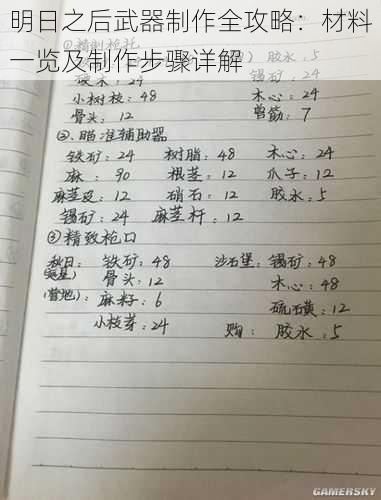 明日之后武器制作全攻略：材料
一览及制作步骤详解
胶水：5
硬木：24 锡矿：24
小树枝：48 木心：24
骨头：12 兽筋：7
②.瞄准辅助器
铁矿：24 树脂：48 木心：24
麻：90 根茎：12 爪子：12
麻茎皮：12 硝石：12 胶水：5
锡矿：24 麻茎杆：12
③精致枪口
秋日：铁矿：48 沙石堡：锡矿：48
骨头：12 木心：48
(营地)：麻籽：6 硫磺：12
小枝芽：24 购：胶水：5
GAMERSKY